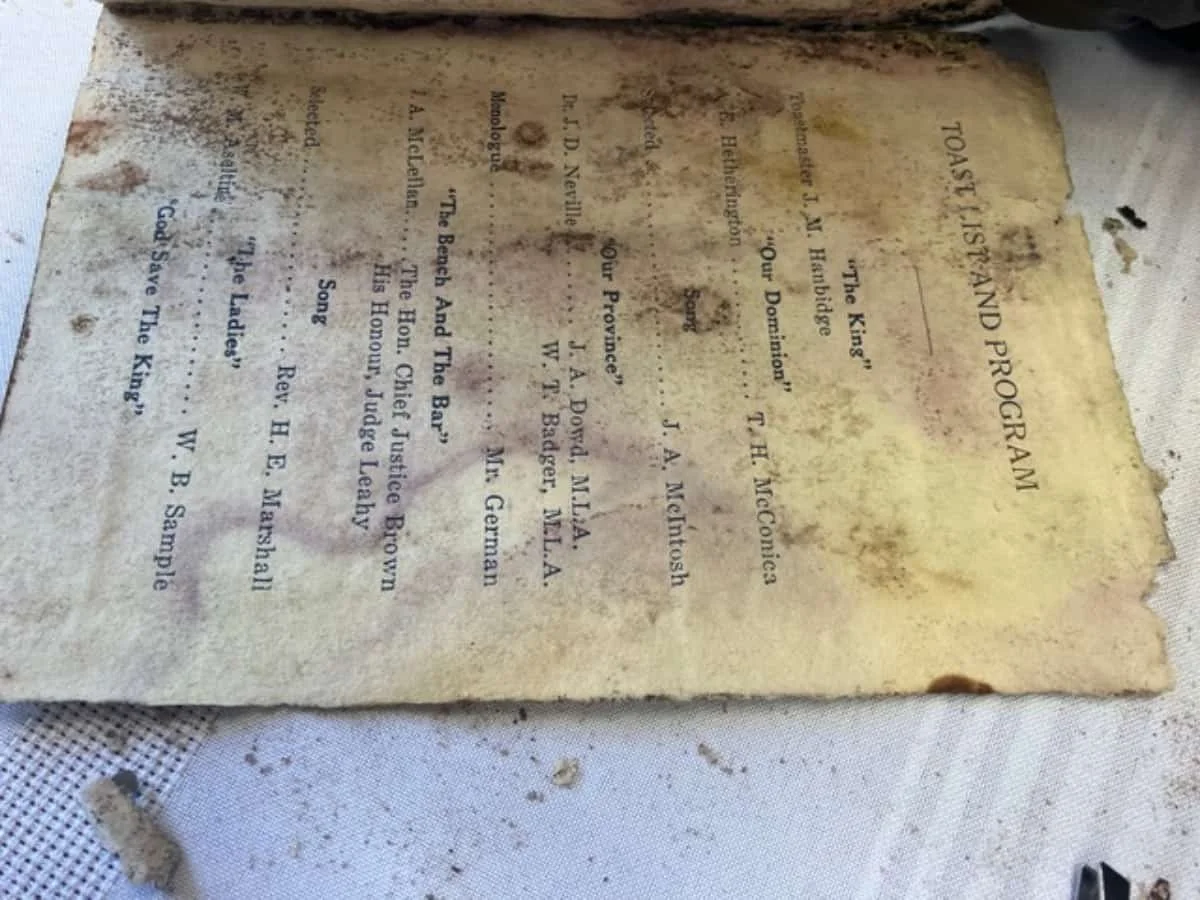 TOAST LIST AND PROGRAM
"The King"
Toastmaster J. M. Hanbidge
"Our Dominion"
E. Hetherington ........ T. H. McConica
Song
Selected ........ J. A. McIntosh
"Our Province"
Dr. J. D. Neville ........ J. A. Dowd, M.L.A.
W. T. Badger, M.L.A.
Monologue ........ Mr. German
"The Bench And The Bar"
J. A. McLellan .... The Hon. Chief Justice Brown
His Honour, Judge Leahy
Song
Selected ........ Rev. H. E. Marshall
"The Ladies"
........ W. B. Sample
"God Save The King"